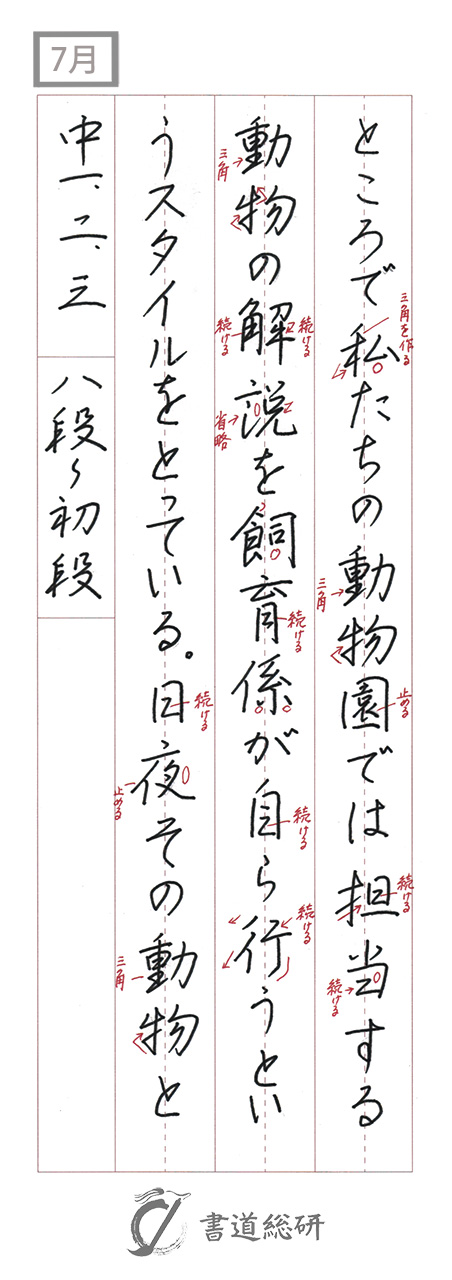 7月
ところで私たちの動物園では担当する
三角を作る
三角
止める
続ける
続ける
動物の解説を飼育係が自ら行うとい
三角
続ける
続ける
省略
続ける
続ける
続ける
うスタイルをとっている。日夜その動物と
続ける
止める
三角
中一、二、三
八段〜初段
書道総研